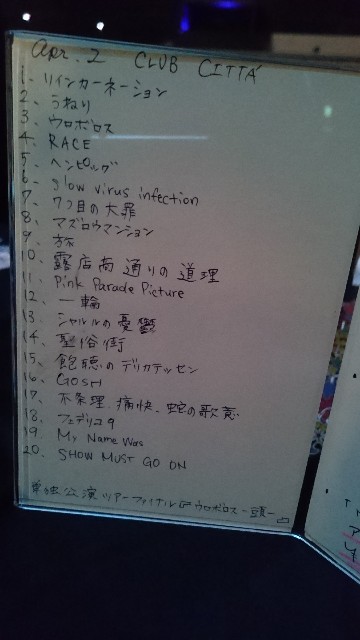 Apr. 2 CLUB CITTA'
1、リインカーネーション
2、うねり
3、ウロボロス
4、RACE
5、ヘンピッグ
6、glow virus infection
7、7つ目の大罪
8、マズロウマンション
9、
10、露店商通りの道理
11、Pink Parade Picture
12、一輪
13、シャルルの憂鬱
14、聖俗街
15、飽聴のデリカテッセン
16、GOSH
17、不条理、痛快、蛇の歌
18、フェデリコ9
19、My Name Was
20、SHOW MUST GO ON
単独公演ツアーファイナル ウロボロス-頭-